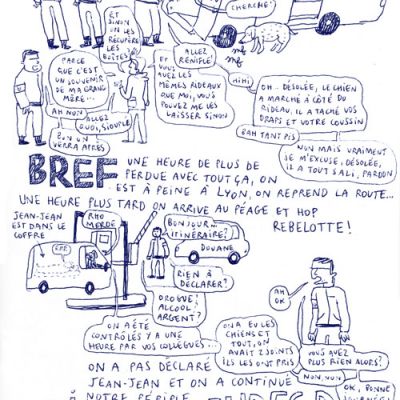 CHERCHE!
ET
SINON
ON LES
RÉCUPÈRE
LES
BOÎTES?
ALLEZ
RENIFLE!
PARCE
QUE C'EST
UN SOUVENIR
DE MA GRAND
MÈRE...
AH NON
ALLEZ
QUOI, SIOUPLÉ
BON ON
VERRA APRÈS
AVEZ LES
MÊMES RIDEAUX
QUE MOI, VOUS
POUVEZ ME LES
LAISSER SINON
HIHI
OH.. DÉSOLÉE, LE CHIEN
A MARCHÉ À CÔTÉ DU
RIDEAU, IL A TACHÉ VOS
DRAPS ET VOTRE COUSSIN
BAH TANT PIS
NON MAIS VRAIMENT
JE M'EXCUSE, DÉSOLÉE,
IL A TOUT SALI, PARDON
BREF UNE HEURE DE PLUS DE
PERDUE AVEC TOUT ÇA, ON
EST À PEINE À LYON, ON REPREND LA ROUTE...
UNE HEURE PLUS TARD ON ARRIVE AU PÉAGE ET HOP
REBELOTTE!
JEAN-JEAN
EST DANS LE
COFFRE
RHO
MERDE
BONJOUR...
ITINÉRAIRE?
DOUANE
RIEN À
DÉCLARER?
DROGUE?
ALCOOL?
ARGENT?
ON A ÉTÉ
CONTRÔLÉS Y A UNE
HEURE PAR VOS COLLÈGUES...
ON A EU LES
CHIENS ET
TOUT, ON
AVAIT 2 JOINTS
ILS LES ONT PRIS
AH
OK
VOUS AVEZ
PLUS RIEN ALORS?
NON, NON
OK, BONNE
JOURNÉE!
ON A PAS DÉCLARÉ
JEAN-JEAN ET ON A CONTINUÉ
NOTRE PÉRIPLE